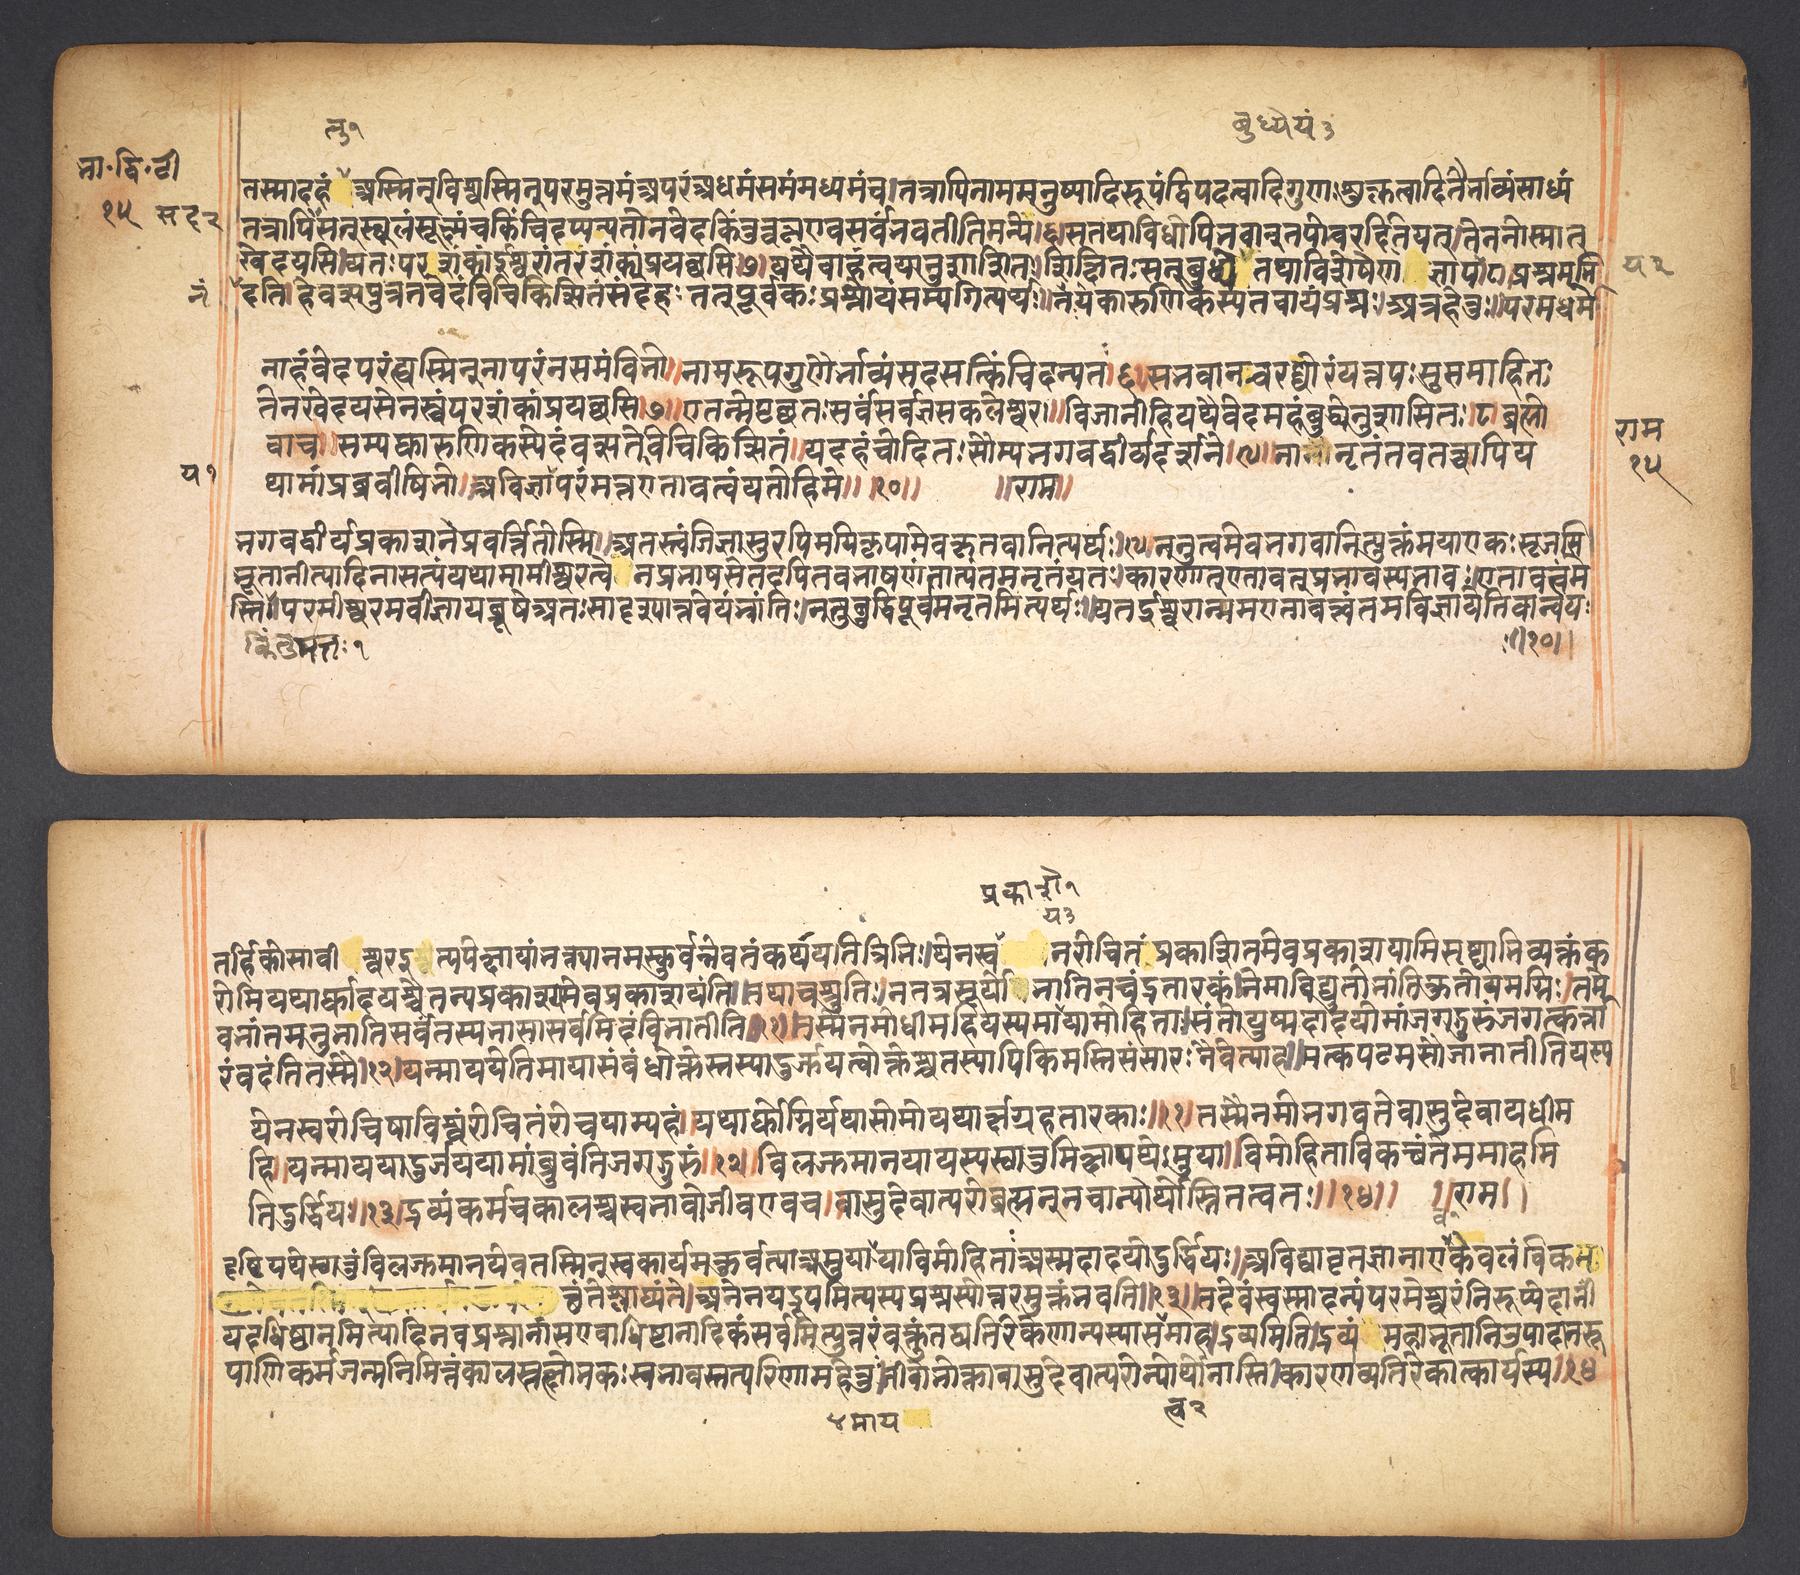 त्नु१
बुध्येयं३
भा॰द्वि॰टी
१५
सदृ२
तस्मादहं अस्मिन् विश्वस्मिन् परमुत्तमं अपरं अधमं समं मध्यमं च। तत्रापि नाम मनुष्यादि रूपं द्विपदत्वादि गुणः शुक्लत्वादि तैर्भाव्यं साध्यं
तत्रापि सत् स्थूलं सूक्ष्मं च किंचिदप्यन्यतो न वेद किंतु त्वत्त एव सर्वं भवतीति मन्ये।६। स तथाविधोपि भवान् तपो चरदिति यत्। तेन नोस्मान्
खेदयसि। यतः परशंकां ईश्वरांतरशंकां प्रयच्छसि।७। यथैवाहं त्वयानुशाशितः शिक्षितः सन् बुध्ये तथा विशेषेण ज्ञापय।८। प्रश्नमभि
नं
य२
दति। हे वत्स पुत्र तवेदं विचिकित्सितं संदेहः तत्पूर्वकः प्रश्नोयं सम्यगित्यर्थः।। ते यं कारुणिकस्य तवायं प्रश्नः। अत्र हेतुः।। परमधर्मे
नाहं वेद परं ह्यस्मिन् नापरं न समं विभो।। नामरूपगुणैर्भाव्यं सदसत्किंचिदन्यतः।६। स भवानचरद्घोरं यत्तपः सुसमाहितः
तेन खेदयसे नस्त्वं परशंकां प्रयच्छसि।७।। एतन्मे पृच्छतः सर्वं सर्वज्ञ सकलेश्वर।। विजानीहि यथैवेदमहं बुध्येनुशासितः।८। ब्रह्मो
वाच।। सम्यक्कारुणिकस्येदं वत्स ते विचिकित्सितं।। यदहं चोदितः सौम्य भगवद्वीर्यदर्शने।।९।। नानृतं तव तच्चापि य
राम
१५
य१
था मां प्रब्रवीषि भो।। अविज्ञाय परं मत्त एतावत्त्वं यतो हि मे।। ।१०।। ।।राम।।
भगवद्वीर्यप्रकाशने प्रवर्त्तितोस्मि।। अतस्त्वं जिज्ञासुरपि मयि कृपामेव कृतवानित्यर्थः।।९।। ननु त्वमेव भगवानित्युक्तं मया एकः सृजसि
भूतानीत्यादिना सत्यं यथा मामीश्वरत्वेन प्रभाषसे तदपि तव भाषणं नात्यंतमनृतं यतः कारणात् एतावत् प्रभावस्य भावः। एतावत्त्वं मे
स्ति।। परमीश्वरमविज्ञाय ब्रूषे अतः सादृश्यात्तवेयं भ्रांतिः। न तु बुद्धिपूर्वमनृतमित्यर्थः।। यत ईश्वरान्मम एतावत्त्वं तमविज्ञायेति वान्वयः
किंतुमत्तः१
।।१०।।
प्रकाशे१
य३
तर्हि कोसावीश्वर इत्यपेक्षायां तत्त्व्यानमस्कुर्वन्नेव तं कथयति त्रिभिः।। येन स्व न रोचितं प्रकाशितमेव प्रकाशयामि सृष्ट्याभिव्यक्तं क
रोमि यथार्कादयश्चैतन्यप्रकाशमेव प्रकाशयंति।। तथा च श्रुतिः। न तत्र सूर्यो भाति न चंद्रतारकं। नेमा विद्युतो भांति कुतोयमग्निः। तमे
व भांतमनुभाति सर्वं तस्य भासा सर्वमिदं विभातीति।।११।। तस्मै नमो धीमहि यस्य मायामोहिताः संतो युष्मदादयो मां जगद्गुरुं जगत्कर्त्ता
रं वदंति तस्मै।१२। यन्माययेति मायासंबंधोक्तेस्तस्या दुर्जयत्वोक्तेश्च तस्यापि किमस्ति संसारः नेवेत्याह।। मत्कपटमसौ जानातीति यस्य
येन स्वरोचिषा विश्वं रोचितं रोचयाम्यहं।। यथार्कोग्निर्यथा सोमो यथार्क्षग्रहतारकाः।।११। तस्मै नमो भगवते वासुदेवाय धीम
हि। यन्मायया दुर्जयया मां ब्रुवंति जगद्गुरुं।।१२।। विलज्जमानया यस्य स्थातुमीक्षापथेऽमुया।। विमोहिता विकत्थंते ममाहमि
ति दुर्द्धियः।।१३। द्रव्यं कर्म च कालश्च स्वभावो जीव एव च। वासुदेवात्परो ब्रह्मन् न चान्योर्थोस्ति तत्वतः।।१४।। ।।राम।।
व२
दृष्टिपथे स्थातुं विलज्जमानयेव तस्मिन् स्वकार्यमकुर्वत्या अमुया यया विमोहिता अस्मदादयो दुर्द्धियः।। अविद्यावृतज्ञाना एव केवलं विकत्
थंते श्लाघ्यंते। अनेन यद्रूपमित्यस्य प्रश्नस्योत्तरमुक्तं भवति।।१३।। तदेवं स्वस्मादन्यं परमेश्वरं निरूप्येदानीं
यदधिष्ठानमित्यादि नव प्रश्नानां स एवाधिष्ठानादिकं सर्वमित्युत्तरं वक्तुं तद्व्यतिरेकेणान्यस्यासत्त्वमाह। द्रव्यमिति। द्रव्यं महाभूतानि उपादानरू
पाणि कर्म जन्मनिमित्तं कालस्तत्क्षोभकः स्वभावस्तत्परिणामहेतुः। जीवो भोक्ता वासुदेवात्परोन्योर्थो नास्ति। कारणव्यतिरेकात्कार्यस्य।१४
४माय
त्व२